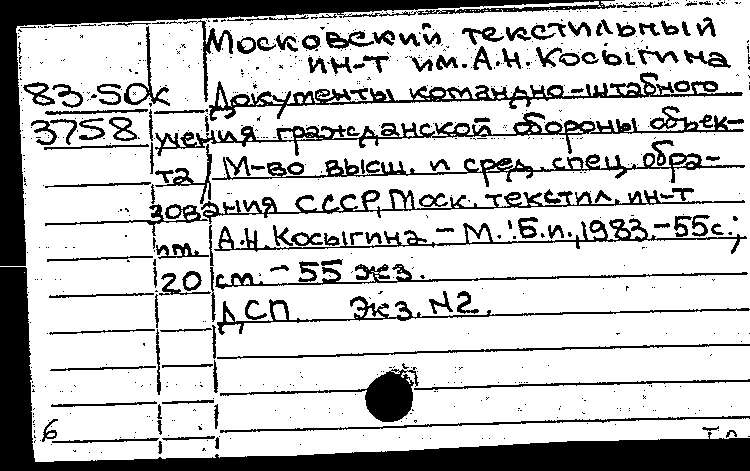 Московский текстильный
ин-т им. А.Н. Косыгина
83-50к Документы командно-штабного
3758 учения гражданской обороны объек-
та / М-во высш. и сред. спец. обра-
зования СССР, Моск. текстил. ин-т
им. А.Н. Косыгина. - М.: Б.и., 1983. - 55с.;
20 см. - 55 экз.
ДСП. Экз. N2.
6